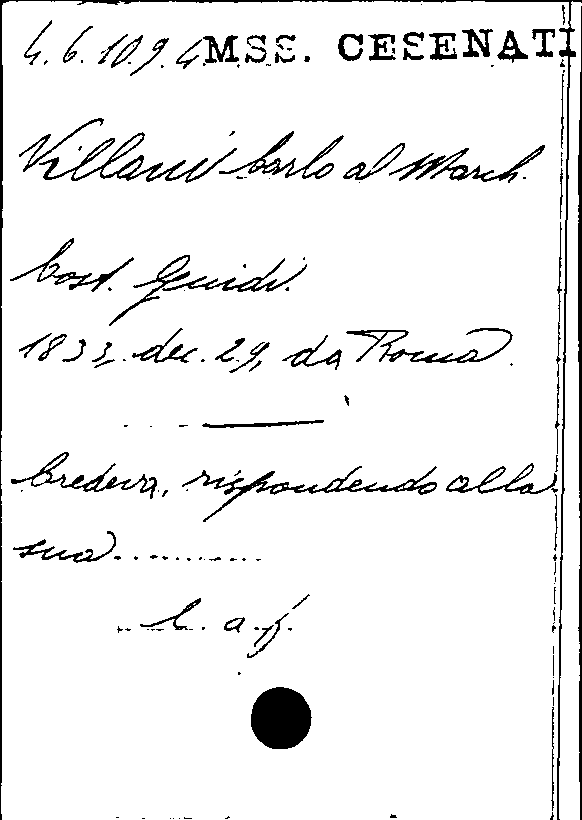 4.6.10.9.4 MSS. CESENATI
Villani Carlo al March.
Cost. Guidi.
1833, dec. 29, da Roma.
Credeva, rispondendo alla
sua..........
L. a f.